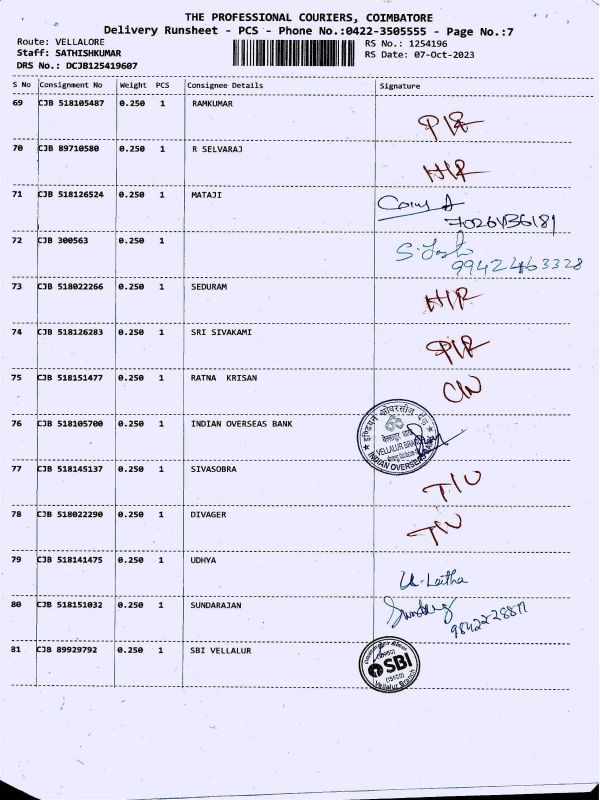 THE PROFESSIONAL COURIERS, COIMBATORE
Delivery Runsheet - PCS - Phone No.:0422-3505555 - Page No.:7
Route: VELLALORE
RS No.: 1254196
Staff: SATHISHKUMAR
RS Date: 07-Oct-2023
DRS No.: DCJB125419607
S No Consignment No Weight PCS Consignee Details Signature
69 CJB 518105487 0.250 1 RAMKUMAR
70 CJB 89710580 0.250 1 R SELVARAJ
71 CJB 518126524 0.250 1 MATAJI
72 CJB 300563 0.250 1
9942463328
73 CJB 518022266 0.250 1 SEDURAM
74 CJB 518126283 0.250 1 SRI SIVAKAMI
75 CJB 518151477 0.250 1 RATNA KRISAN
76 CJB 518105700 0.250 1 INDIAN OVERSEAS BANK
VELLALUR
INDIAN OVERSEAS
77 CJB 518145137 0.250 1 SIVASOBRA
78 CJB 518022290 0.250 1 DIVAGER
79 CJB 518141475 0.250 1 UDHYA
U. Latha
80 CJB 518151032 0.250 1 SUNDARAJAN
81 CJB 89929792 0.250 1 SBI VELLALUR
SBI
Vellalur Branch